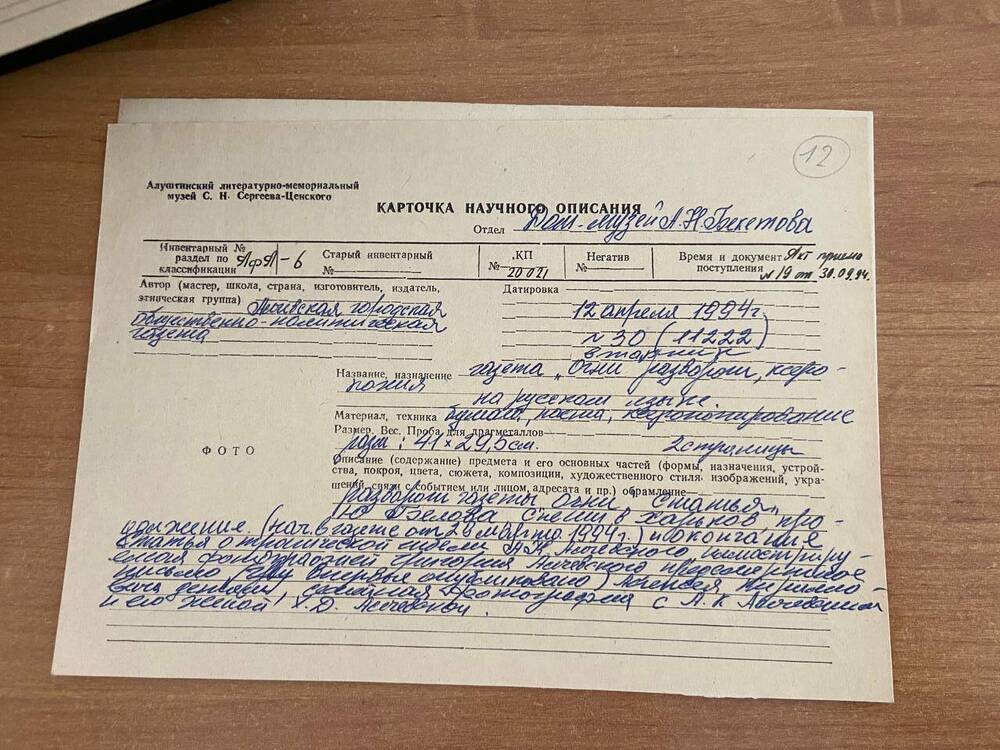 12
Алуштинский литературно-мемориальный
музей С. Н. Сергеева-Ценского
КАРТОЧКА НАУЧНОГО ОПИСАНИЯ
Отдел Дом-музей А.Н. Бекетова
Инвентарный №
раздел по
классификации -6
Старый инвентарный
№
КП
№ 20021
Негатив
№
Время и документ Акт приема
поступления №19 от 30.09.94.
Автор (мастер, школа, страна, изготовитель, издатель,
этническая группа) городская
общественно-политическая
газета
Датировка
12 апреля 1994г.
№ 30 (11222)
вторник
Название, назначение газета "Огни" разворот, ксеро-
копия
на русском языке.
Материал, техника бумага, паста, ксерокопирование
Размер. Вес. Проба для драгметаллов
разм: 41×29,5 см. 2 страницы
ФОТО
Описание (содержание) предмета и его основных частей (формы, назначения, устрой-
ства, покроя, цвета, сюжета, композиции, художественного стиля, изображений, укра-
шений, связи с событием или лицом, адресата и пр.) обрамление
разворот газеты "Огни" статья
Ю Белова Харьков про-
должение (нач. в газете от 29 марта 1994г.) и окончание
статья о трагической А.К.
фотографией
письмо впервые опубликовано)
фотография с А.К.
и его женой Х.Д.